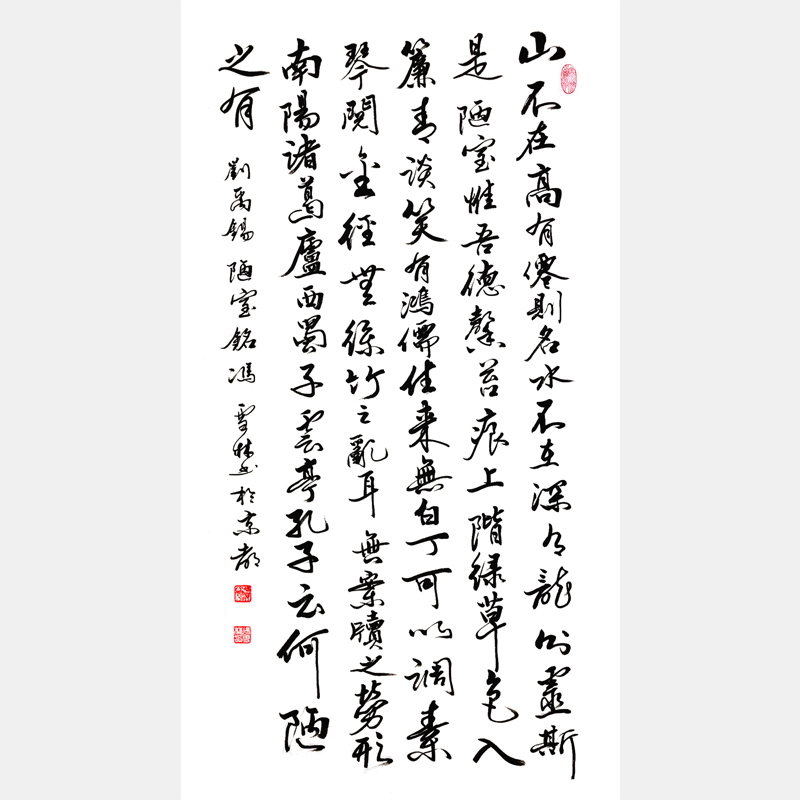 山不在高有僊則名水不在深有龍則靈斯
是陋室惟吾德馨苔痕上階緑草色入
簾青談笑有鴻儒往来無白丁可以調素
琴閱金經無絲竹之亂耳無案牘之勞形
南陽諸葛廬西蜀子雲亭孔子云何陋
之有
劉禹錫陋室銘馮雪林書於京都